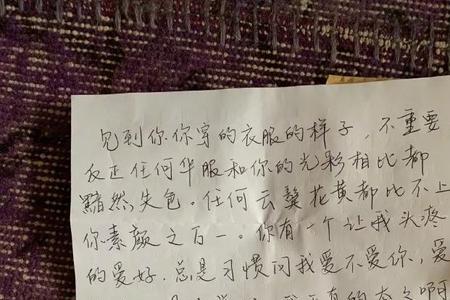 见到你你穿的衣服的样子,不重要
反正任何华服和你的光彩相比都
黯然失色。任何云鬓花黄都比不上
你素颜之百一。你有一个让我头疼
的爱好,总是习惯问我爱不爱你,爱